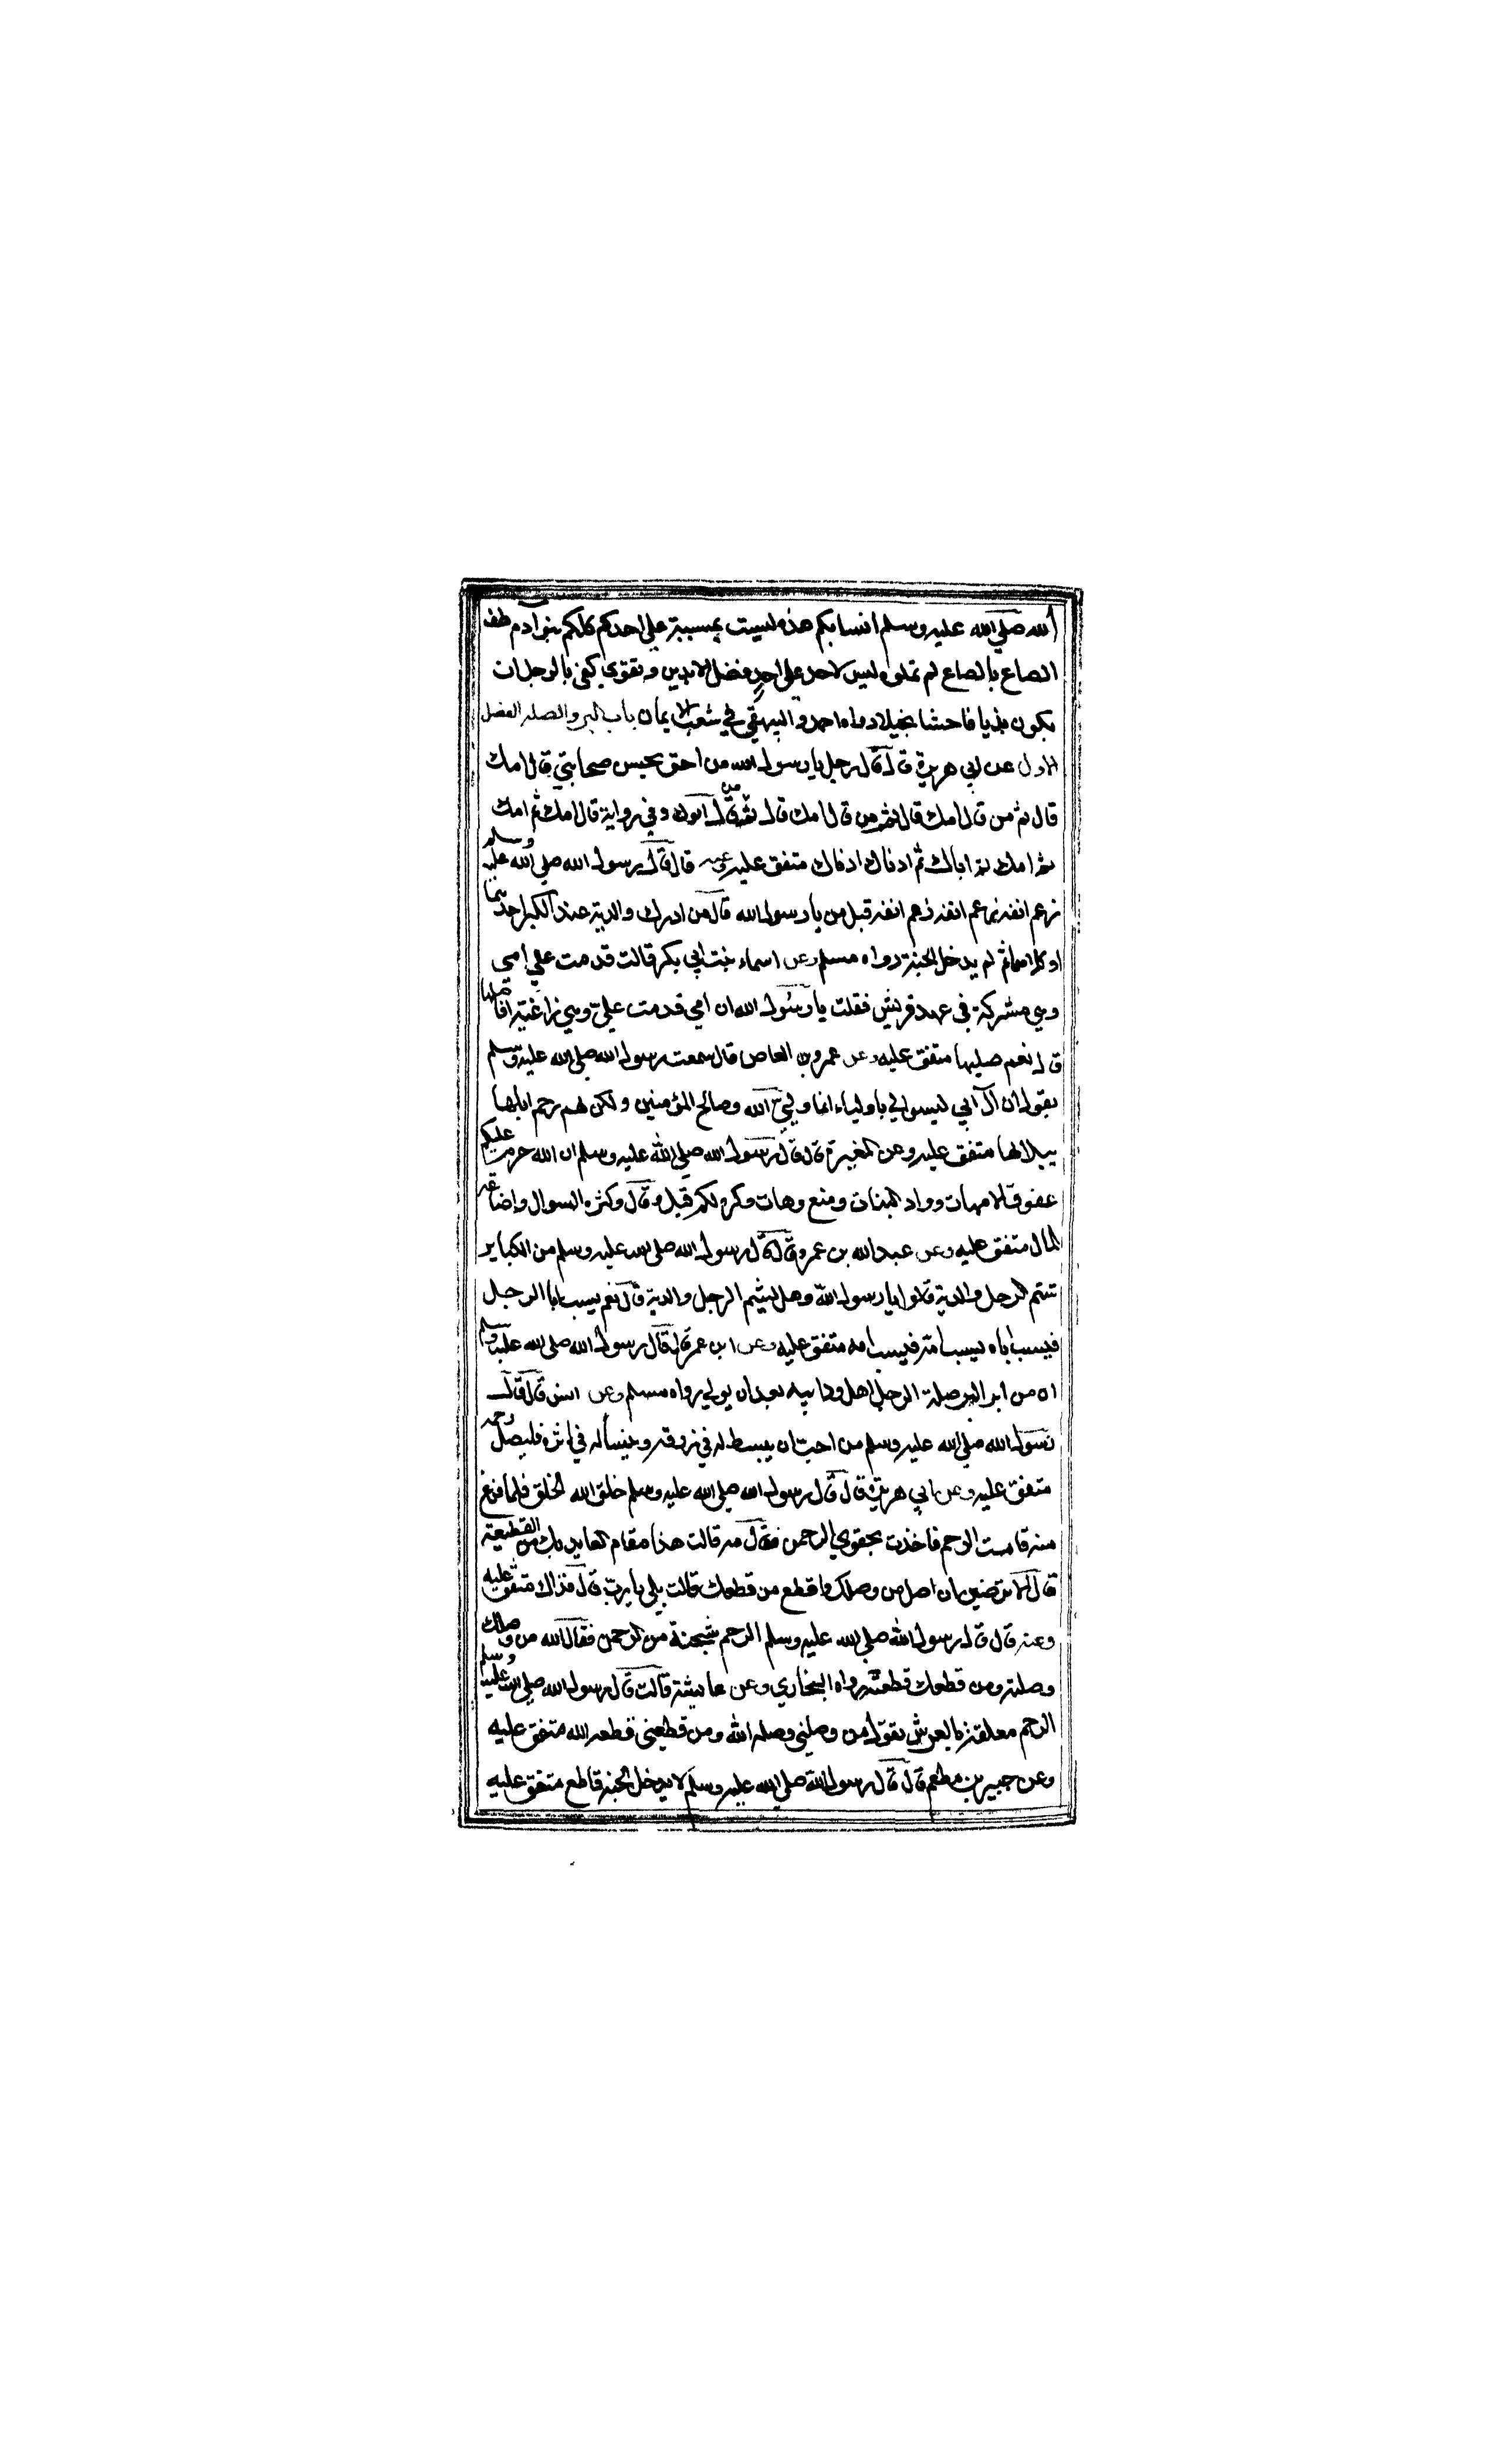 الله صلي الله عليه وسلم انسابكم هذه ليست بمسبة علي احدكم كلكم بنو ادم طف
الصاع بالصاع لم تملوه ليس لاحد علي احد فضل الا بدين و تقوي كفي بالرجل ان
يكون بذيا فاحشا بخيلا رواه احمد و البيهقي في شعب الايمان باب البر والصله الفصل
الاول عن ابي هريرة قال قال رجل يا رسول الله من احق بحسن صحابتي قال امك
قال ثم من قال امك قال ثم من قال امك قال ثم من قال ابوك وفي رواية قال امك ثم امك
ثم امك ثم اباك ثم ادناك ادناك متفق عليه وعنه قال قال رسول الله صلي الله عليه وسلم
رغم انفه رغم انفه رغم انفه قيل من يا رسول الله قال من ادرك والديه عند الكبر احدهما
او كلاهما ثم لم يدخل الجنة رواه مسلم وعن اسماء بنت ابي بكر قالت قدمت علي امي
وهي مشركة في عهد قريش فقلت يا رسول الله ان امي قدمت علي وهي راغبة افاصلها
قال نعم صليها متفق عليه وعن عمرو بن العاص قال سمعت رسول الله صلي الله عليه وسلم
يقول ان آل ابي ليسوا لي باولياء انما وليي الله وصالح المؤمنين ولكن لهم رحم ابلها
ببلالها متفق عليه وعن المغيرة قال قال رسول الله صلي الله عليه وسلم ان الله حرم عليكم
عقوق الامهات وواد البنات ومنع وهات وكره لكم قيل وقال وكثرة السوال واضاعة
المال متفق عليه وعن عبد الله بن عمرو قال قال رسول الله صلي الله عليه وسلم من الكباير
شتم الرجل والديه قالوا يا رسول الله وهل يشتم الرجل والديه قال نعم يسب ابا الرجل
فيسب اباه ويسب امه فيسب امه متفق عليه وعن ابن عمر قال قال رسول الله صلي الله عليه وسلم
ان من ابر البر صلة الرجل اهل ود ابيه بعد ان يولي رواه مسلم وعن انس قال قال
رسول الله صلي الله عليه وسلم من احب ان يبسط له في رزقه وينسأ له في اثره فليصل رحمه
متفق عليه وعن ابي هريرة قال قال رسول الله صلي الله عليه وسلم خلق الله الخلق فلما فرغ
منه قامت الرحم فاخذت بحقوي الرحمن فقال مه قالت هذا مقام العايذ بك من القطيعة
قال الا ترضين ان اصل من وصلك واقطع من قطعك قالت بلي يا رب قال فذاك متفق عليه
وعنه قال قال رسول الله صلي الله عليه وسلم الرحم شجنة من الرحمن فقال الله من وصلك
وصلته ومن قطعك قطعته رواه البخاري وعن عايشة قالت قال رسول الله صلي الله عليه وسلم
الرحم معلقة بالعرش تقول من وصلني وصله الله ومن قطعني قطعه الله متفق عليه
وعن جبير بن مطعم قال قال رسول الله صلي الله عليه وسلم لا يدخل الجنة قاطع متفق عليه